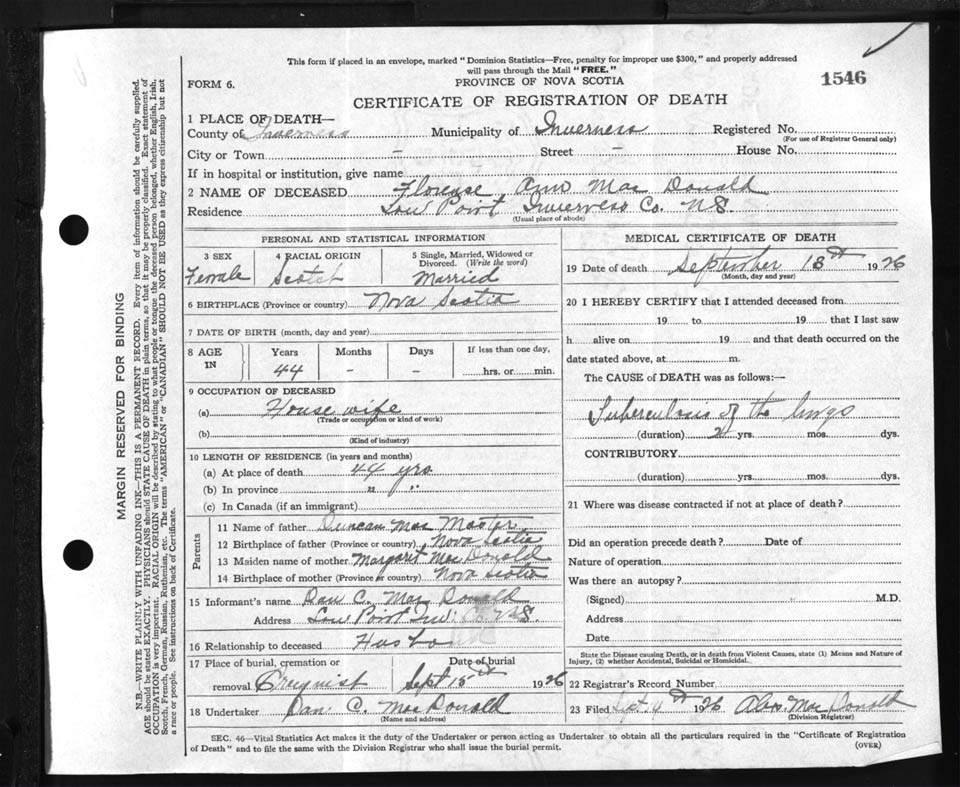 This form if placed in an envelope, marked "Dominion Statistics—Free, penalty for improper use $300," and properly addressed
will pass through the Mail "FREE."
1546
FORM 6.
PROVINCE OF NOVA SCOTIA
CERTIFICATE OF REGISTRATION OF DEATH
1 PLACE OF DEATH—
County of Inverness Municipality of Inverness Registered No.
(For use of Registrar General only)
City or Town – Street – House No.
If in hospital or institution, give name
2 NAME OF DECEASED Florense Ann Mac Donald
Residence Low Point Inverness Co. N.S.
(Usual place of abode)
PERSONAL AND STATISTICAL INFORMATION
3 SEX 4 RACIAL ORIGIN 5 Single, Married, Widowed or
Divorced. (Write the word)
Female Scotch Married
6 BIRTHPLACE (Province or country) Nova Scotia
7 DATE OF BIRTH (month, day and year)
8 AGE IN Years Months Days If less than one day,
44 – – hrs. or min.
9 OCCUPATION OF DECEASED
(a) House wife
(Trade or occupation or kind of work)
(b)
(Kind of industry)
10 LENGTH OF RESIDENCE (in years and months)
(a) At place of death 44 yrs
(b) In province " "
(c) In Canada (if an immigrant)
Parents
11 Name of father Duncan Mac Master
12 Birthplace of father (Province or country) Nova Scotia
13 Maiden name of mother Margaret Mac Donald
14 Birthplace of mother (Province or country) Nova Scotia
15 Informant's name Dan C. Mac Donald
Address Low Point Inv. Co. N.S.
16 Relationship to deceased Husband
17 Place of burial, cremation or Date of burial
removal Creignish Sept 15th 1926
18 Undertaker Dan C. Mac Donald
(Name and address)
MEDICAL CERTIFICATE OF DEATH
19 Date of death September 13th 1926
(Month, day and year)
20 I HEREBY CERTIFY that I attended deceased from
19 to 19 that I last saw
h alive on 19 and that death occurred on the
date stated above, at m.
The CAUSE of DEATH was as follows:—
Tuberculosis of the lungs
(duration) 2 yrs. mos. dys.
CONTRIBUTORY
(duration) yrs. mos. dys.
21 Where was disease contracted if not at place of death?
Did an operation precede death? Date of
Nature of operation
Was there an autopsy?
(Signed) M.D.
Address
Date
State the Disease Causing Death, or in death from Violent Causes, state (1) Means and Nature of
Injury, (2) whether Accidental, Suicidal or Homicidal.
22 Registrar's Record Number
23 Filed 4th 1926 Alex. Mac Donald
(Division Registrar)
SEC. 46—Vital Statistics Act makes it the duty of the Undertaker or person acting as Undertaker to obtain all the particulars required in the "Certificate of Registration
of Death" and to file the same with the Division Registrar who shall issue the burial permit.
(OVER)
MARGIN RESERVED FOR BINDING
N.B.—WRITE PLAINLY WITH UNFADING INK—THIS IS A PERMANENT RECORD. Every item of information should be carefully supplied.
AGE should be stated EXACTLY. PHYSICIANS should STATE CAUSE OF DEATH in plain terms, so that it may be properly classified. Exact statement of
OCCUPATION is very important. RACIAL ORIGIN will be described by stating to what people or tongue the deceased person belonged, whether English, Irish,
Scotch, French, German, Russian, Ruthenian, etc. The terms "AMERICAN" or "CANADIAN" SHOULD NOT BE USED as they express citizenship but not
a race or people. See instructions on back of Certificate.